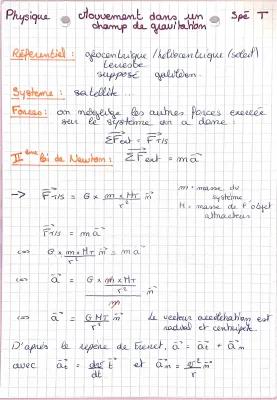 Physique Mouvement dans un Spé T
champ de gravitation
Référentiel : géocentrique / héliocentrique (soleil)
terrestre
supposé galiléen.
Système : satellite...
Forces : on néglige les autres forces exercées
sur le système on a donc :
ΣF⃗ext = F⃗T/S
IIème loi de Newton : ΣF⃗ext = ma⃗
→ F⃗T/S = G × m × MT / r² n⃗ m = masse du
système
M = masse de l'objet
attracteur
F⃗T/S = ma⃗
⇔ G × m × MT / r² n⃗ = ma⃗
⇔ a⃗ = G × m × MT / r² / m n⃗
⇔ a⃗ = G MT / r² n⃗ Le vecteur accélération est
radial et centripète.
D'après le repère de Frenet, a⃗ = a⃗t + a⃗n
avec a⃗t = dv/dt t⃗ et a⃗n = v²/r n⃗